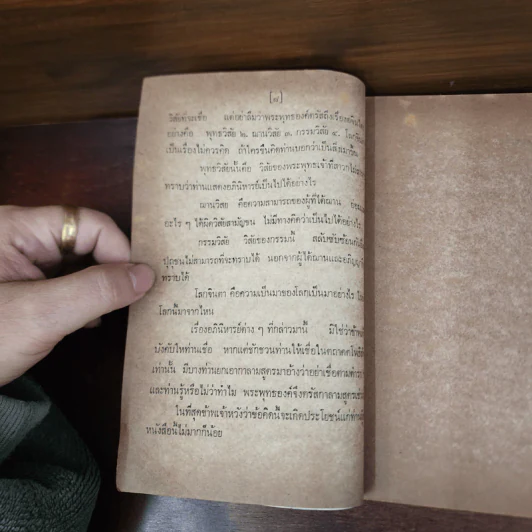 [๗]
วิสัยที่จะเชื่อ แต่อย่าลืมว่าพระพุทธองค์ตรัสถึงเรื่อง
อย่างคือ พุทธวิสัย ๒. ฌานวิสัย ๓. กรรมวิสัย ๔.
เป็นเรื่องไม่ควรคิด ถ้าใครขืนคิดท่านบอกว่าเป็น
พุทธวิสัยนั้นคือ วิสัยของพระพุทธเจ้าที่สาวก
ทราบว่าท่านแสดงอภินิหารย์เป็นไปได้อย่างไร
ฌานวิสัย คือความสามารถของผู้ที่ได้ฌาน
อะไร ๆ ได้ผิดวิสัยสามัญชน ไม่มีทางคิดว่าเป็นไปได้อย่างไร
กรรมวิสัย วิสัยของกรรมนี้ สลับซับซ้อน
ปุถุชนไม่สามารถที่จะทราบได้ นอกจากผู้ได้ฌานและอภิญญา
ทราบได้
โลกจินตา คือความเป็นมาของโลกเป็นมาอย่างไร
โลกนี้มาจากไหน
เรื่องอภินิหารย์ต่าง ๆ ที่กล่าวมานี้ มิใช่ว่าข้าพเจ้า
บังคับให้ท่านเชื่อ หากแต่ชักชวนท่านให้เชื่อในตถาคตโพธิ
เท่านั้น มีบางท่านยกเอากาลามสูตรมาอ้างว่าอย่าเชื่อตามตำรา
และท่านรู้หรือไม่ว่าทำไม พระพุทธองค์จึงตรัสกาลามสูตร
ในที่สุดข้าพเจ้าหวังว่าข้อคิดนี้จะเกิดประโยชน์แก่ท่าน
หนังสือนี้ไม่มากก็น้อย